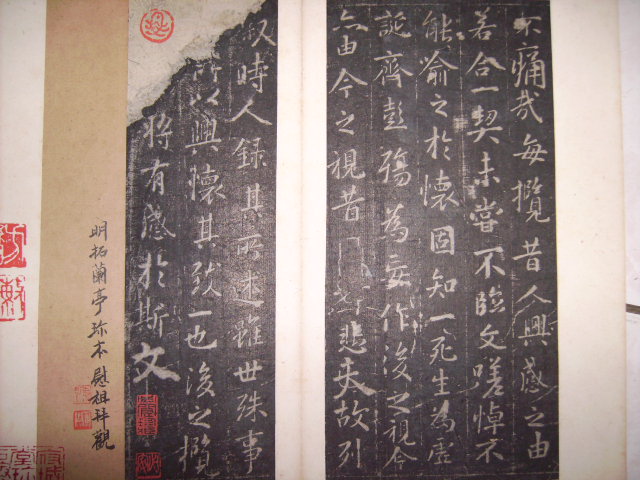 不痛哉每攬昔人興感之由
若合一契未甞不臨文嗟悼不
能喻之於懷固知一死生為虛
誕齊彭殤為妄作後之視今
亦由今之視昔悲夫故列
叙時人錄其所述雖世殊事
所以興懷其致一也後之攬
將有感於斯文
明拓蘭亭珍本慰祖拜觀